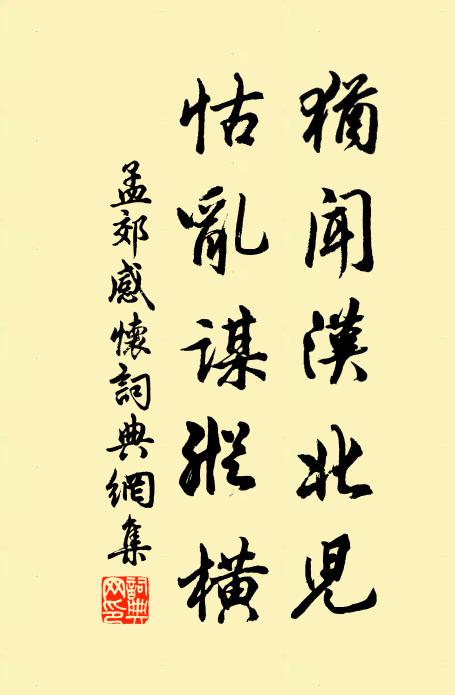 猶聞漢北兒
怙亂謀縱橫
孟郊感懷詞典網集
詞典網印